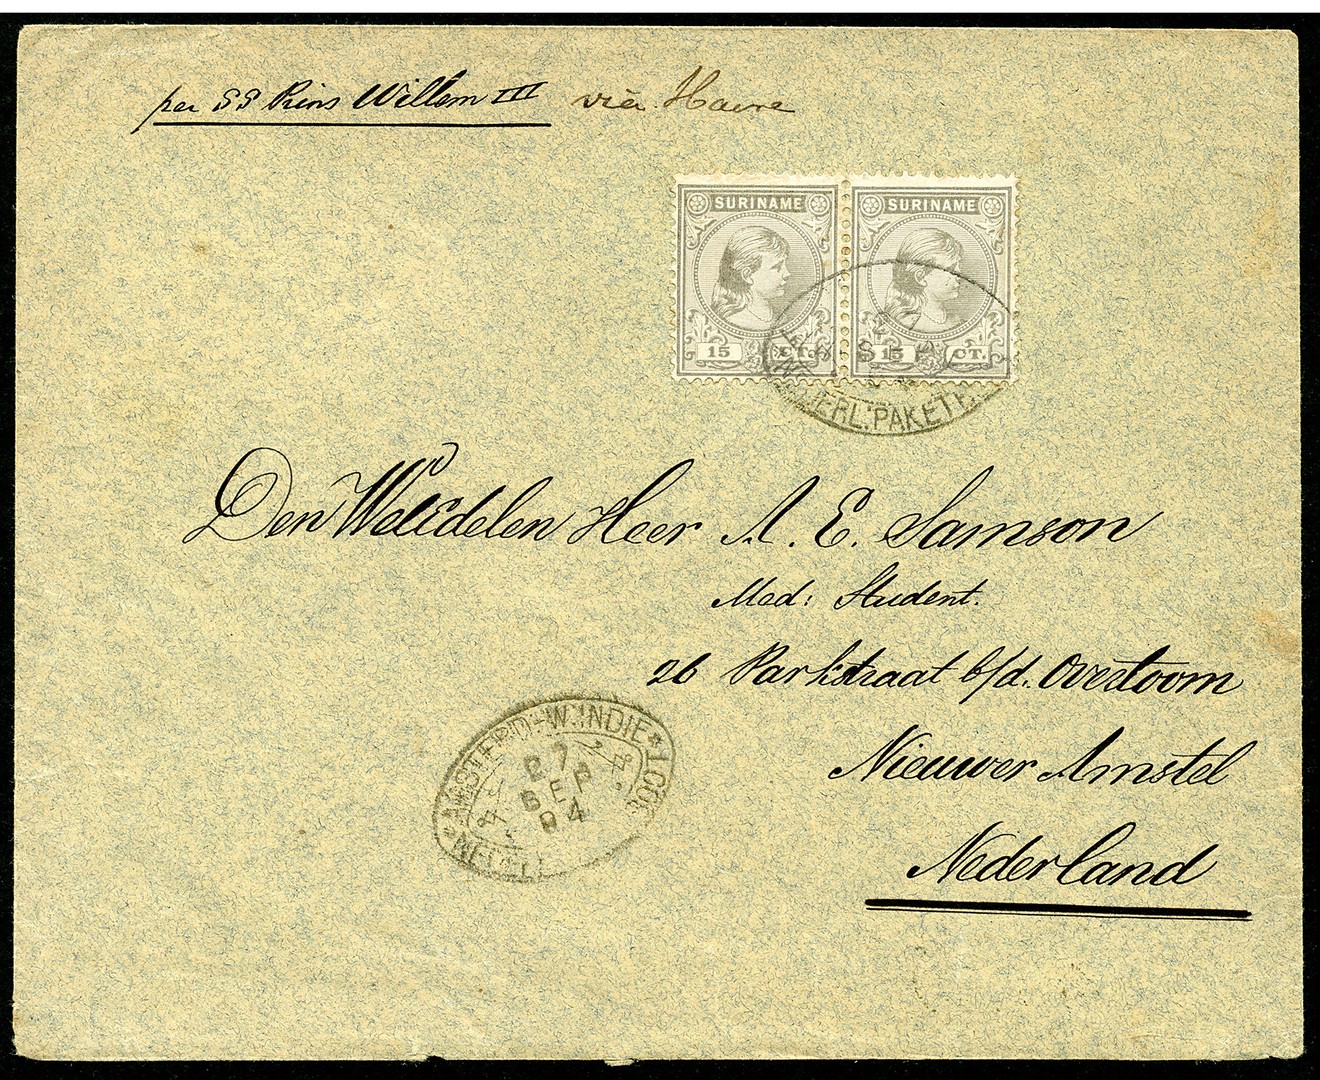 per SS Prins Willem III via Havre
SURINAME SURINAME
15 CT. 15 CT.
NEDERL. PAKETB
Den WelEdelen Heer A. E. Samson
Med: Student.
26 Parkstraat b/d. Overtoom
Nieuwer Amstel
Nederland
AMSTERD-W.INDIE * LOO
27
SEP
94